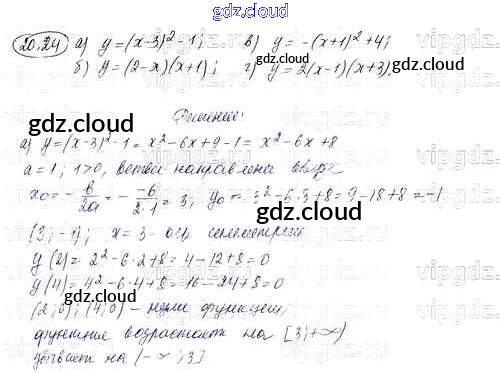 gdz.cloud
20.24 а) y=(x-3)²-1; в) y=-(x+1)²+4;
б) y=(2-x)(x+1); г) y=2(x-1)(x+3).
gdz.cloud
Решение:
gdz.cloud
а) y=(x-3)²-1=x²-6x+9-1=x²-6x+8
a=1; 1>0, ветви направлены вверх
gdz.cloud
x₀=-b/2a=--6/2·1=3; y₀=3²-6·3+8=9-18+8=-1
gdz.cloud
(3;-1); x=3-ось симметрии
y(2)=2²-6·2+8=4-12+8=0
gdz.cloud
y(4)=4²-6·4+8=16-24+8=0
(2;0); (4;0)-нули функции;
gdz.cloud
функция возрастает на [3;+∞)
убывает на (-∞;3]